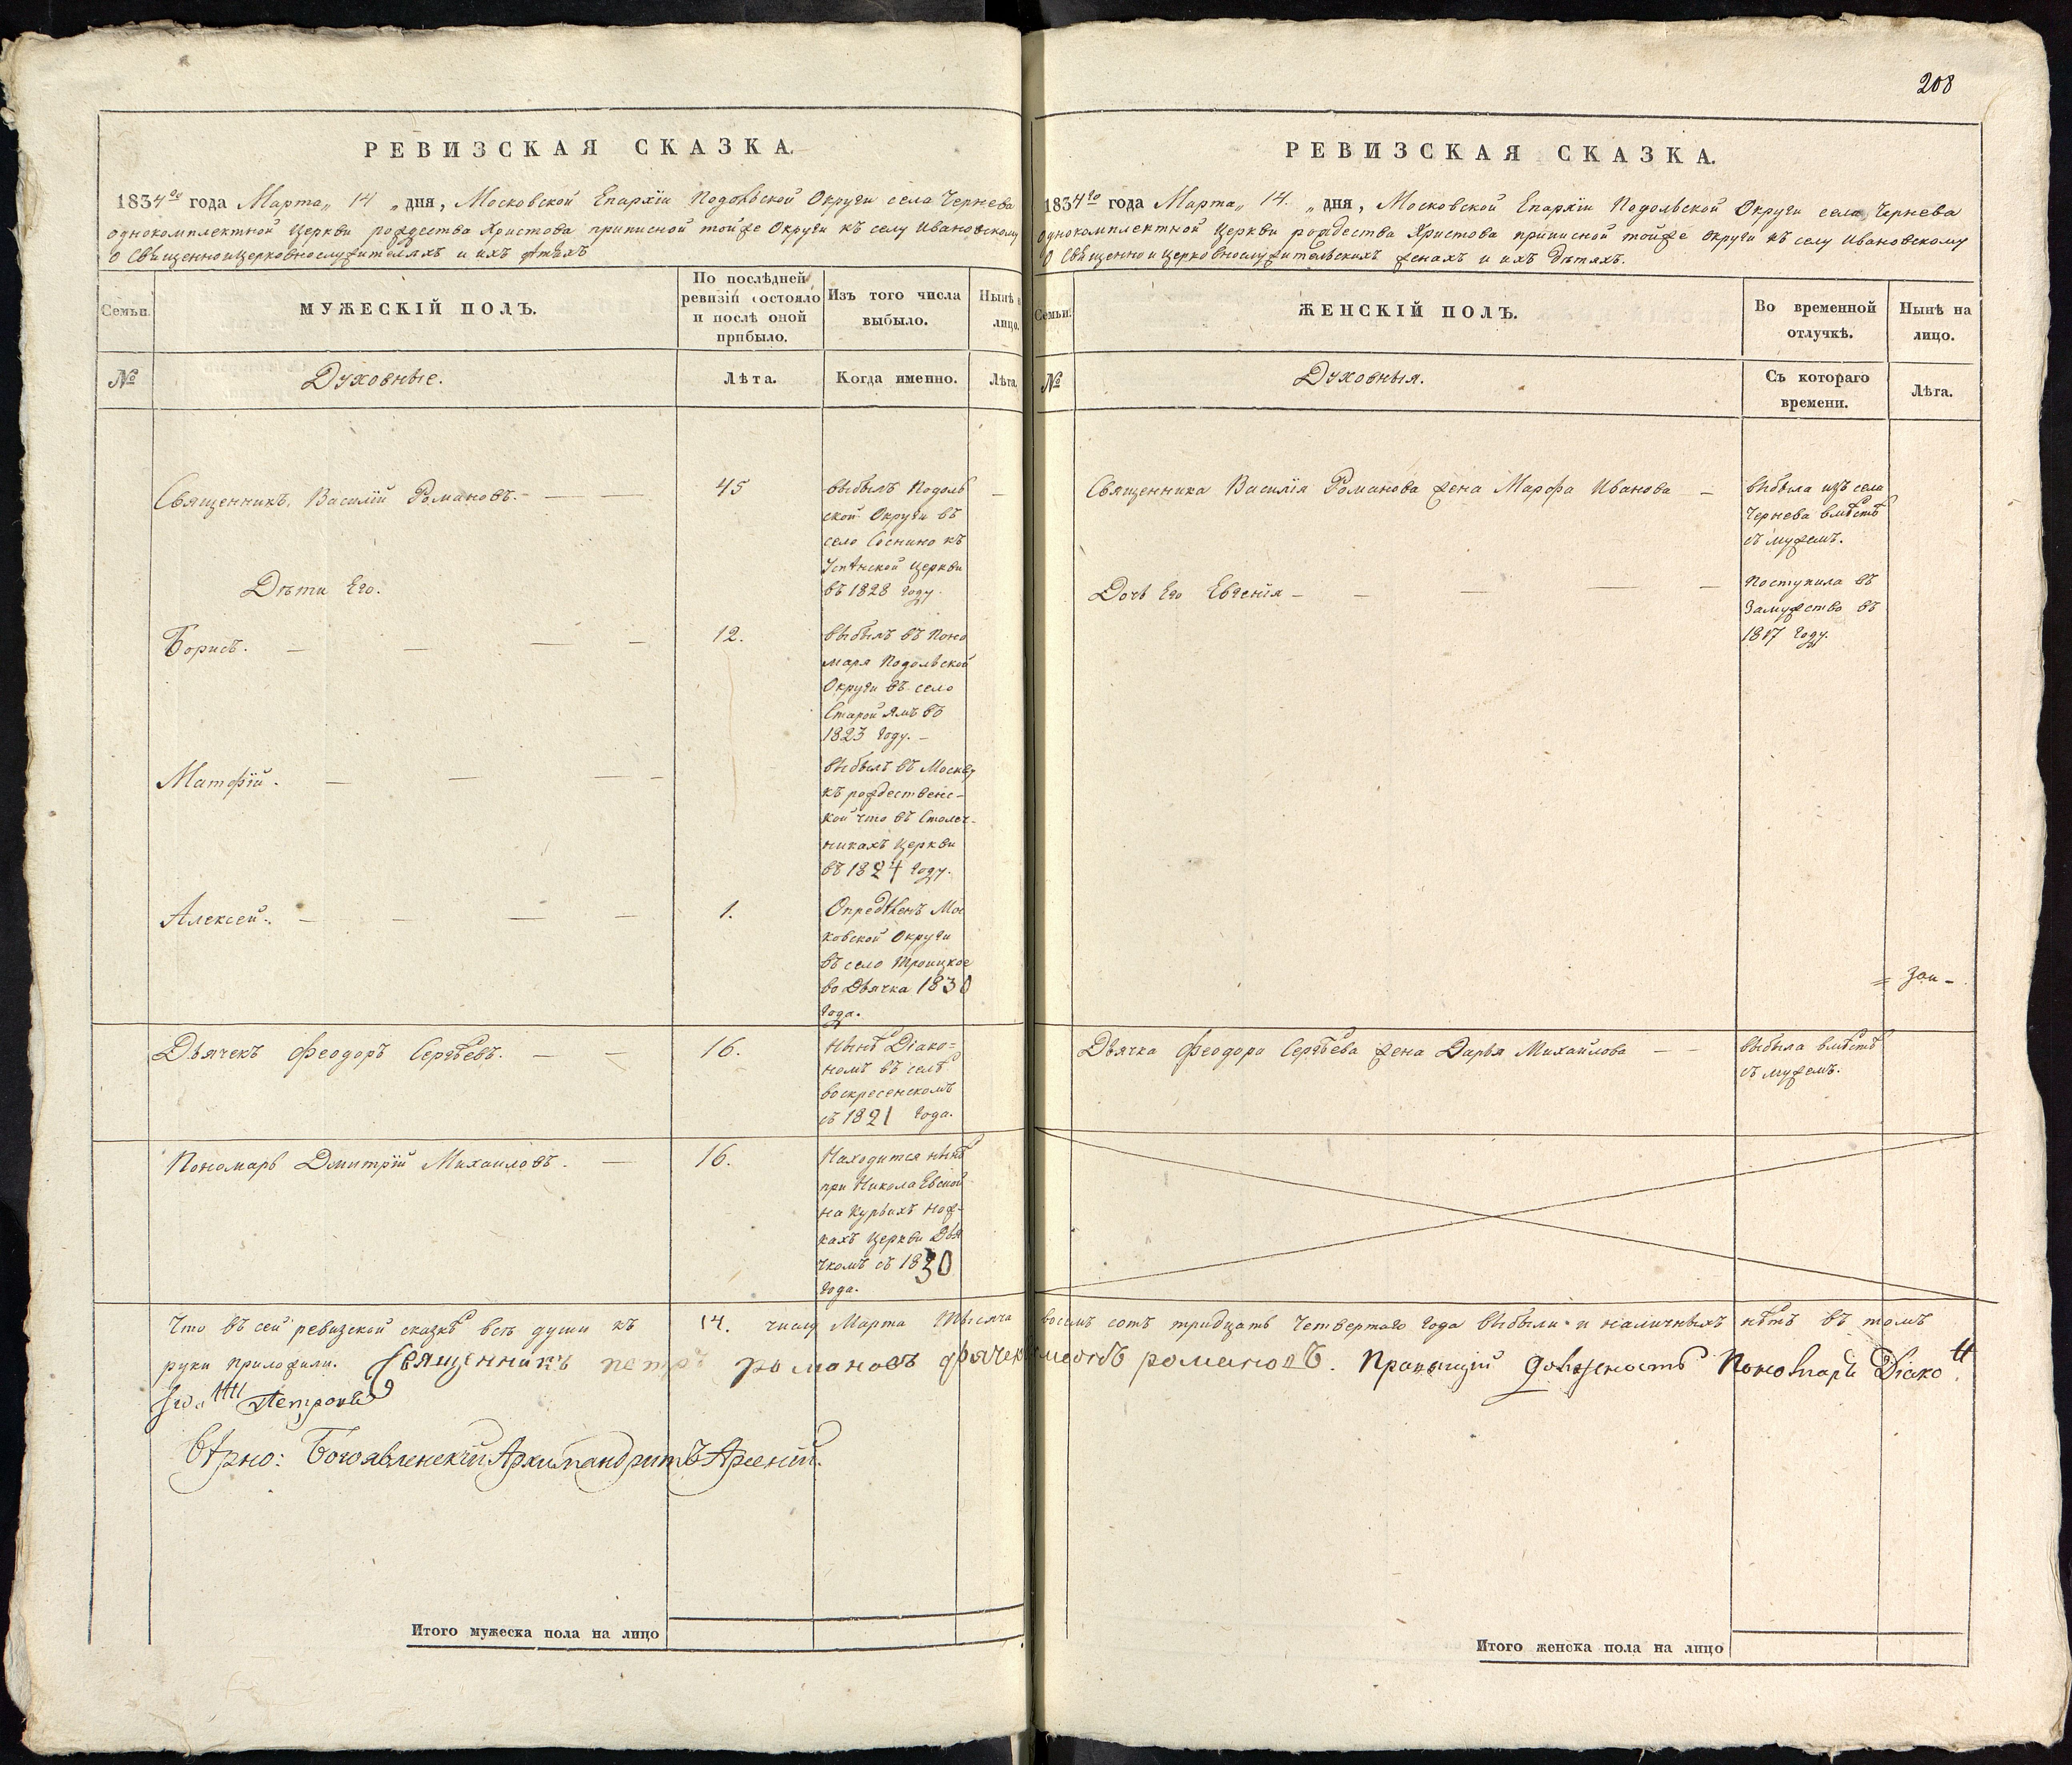 РЕВИЗСКАЯ СКАЗКА.
1834го года Марта „ 14 „ дня, Московской Епархiи Подольской Округи села Чернева
однокомплектной Церкви рождества Христова приписной тойже Округи къ селу Ивановскому
О Священноицерковнослужителяхъ и ихъ дѣтяхъ
Семьи.
МУЖЕСКIЙ ПОЛЪ.
По послѣдней
ревизiи состояло
и послѣ оной
прибыло.
Изъ того числа
выбыло.
Нынѣ
лицо.
№
Духовные.
Лѣта.
Когда именно.
Лѣта
Священникъ Василiй Романовъ.
45
выбылъ Подоль
ской Округи въ
село Соснино къ
Успѣнской Церкви
въ 1828 году.
Дѣти Его.
Борисъ.
12.
выбылъ въ Поно
маря Подольской
Округи въ село
Старой Ямъ въ
1823 году.
Матфiй.
выбылъ въ Москву
къ рождественс-
кой что въ Столеч-
никахъ Церкви
въ 1824 году.
Алексей.
1.
Опредѣленъ Мос
ковской Округи
въ село Троицкое
во Дьячка 1830
года.
Дьячекъ Феодоръ Сергѣевъ.
16.
нынѣ Дiако=
номъ въ селѣ
воскресенскомъ
съ 1821 года.
Пономарь Дмитрiй Михаиловъ.
16.
Находится нынѣ
при Николаевской
на Курьихъ нож-
кахъ Церкви Дья
чкомъ съ 1830
года.
208
РЕВИЗСКАЯ СКАЗКА.
1834го года Марта „ 14. „ дня, Московской Епархiи Подольской Округи села Чернева
однокомплектной Церкви рождества Христова приписной тойже округи къ селу Ивановскому
О Священно и церковнослужительскихъ женахъ и ихъ дѣтяхъ.
Семьи.
ЖЕНСКIЙ ПОЛЪ.
Во временной
отлучкѣ.
Нынѣ на
лицо.
№
Духовныя.
Съ котораго
времени.
Лѣта.
Священника Василiя Романова жена Марфа Иванова
выбыла изъ села
Чернева вмѣстѣ
съ мужемъ.
Дочь Его Евгенiя
Поступила въ
Замужство въ
1817 году.
Дьячка Феодора Сергѣева жена Дарья Михайлова
выбыла вмѣстѣ
съ мужемъ.
Что въ сей ревизской сказкѣ всѣ души къ 14. числу Марта тысяча восемь сотъ тридцать четвертаго года выбыли и наличныхъ нѣтъ въ томъ
руки приложили. Священникъ петръ романовъ романовъ. Правящiй должность Пономаря Дiакон
Петровъ
Вѣрно: Богоявленскiй Архимандритъ Арсенiй.
Итого мужеска пола на лицо
Итого женска пола на лицо